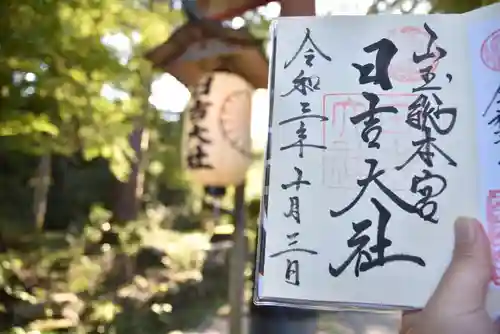 山王総本宮
日吉大社
令和三年十月三日
日吉大社